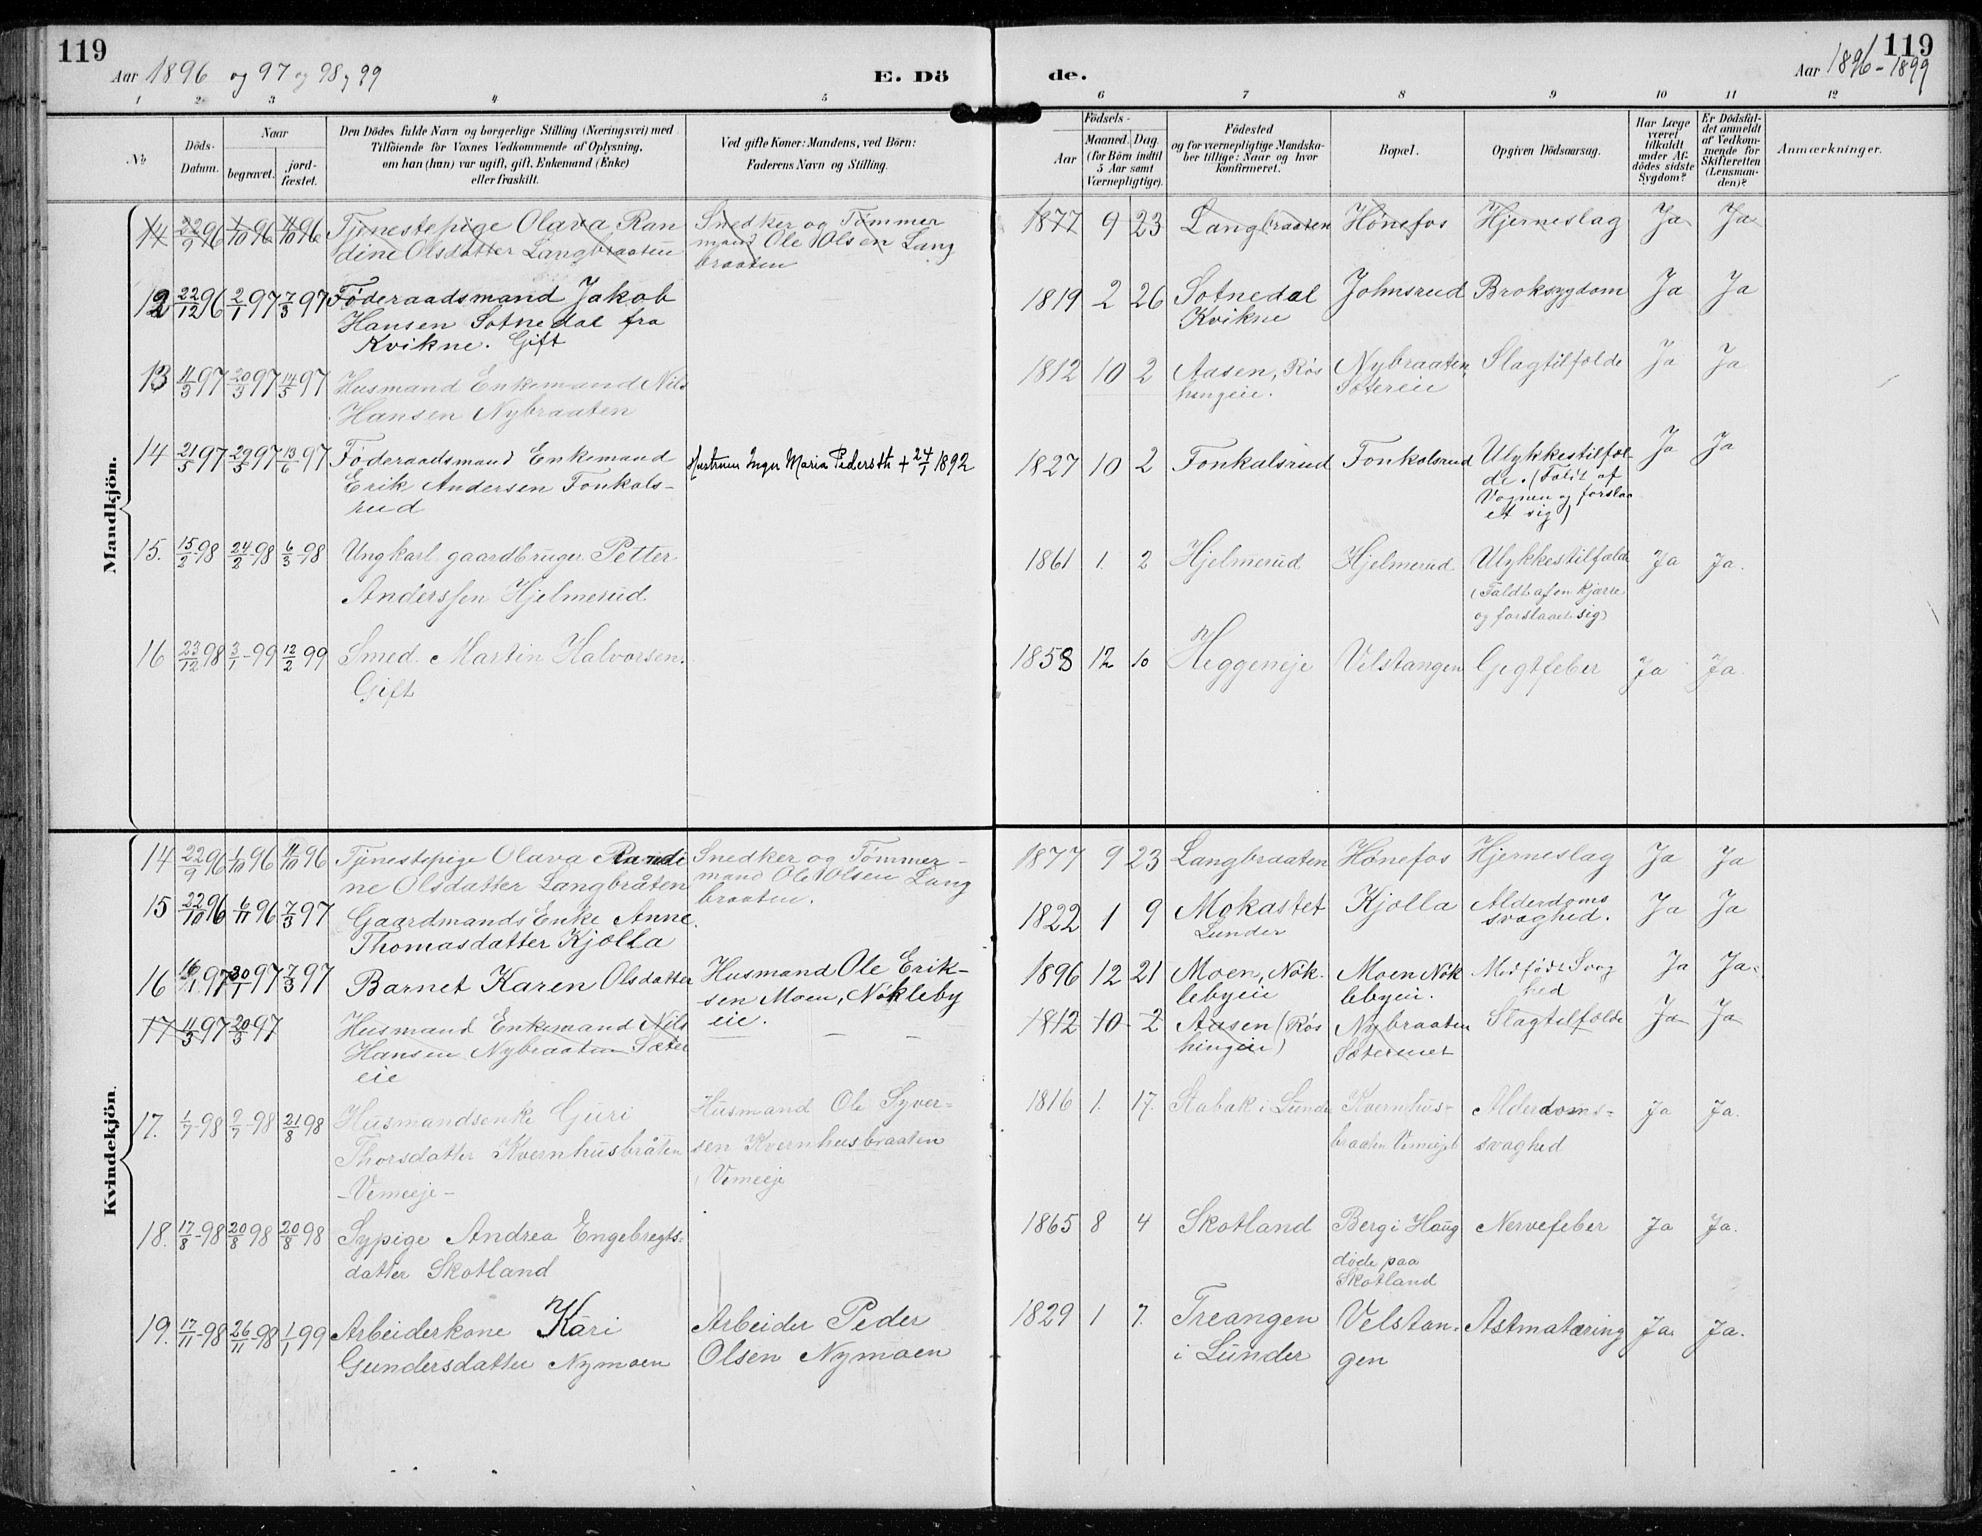 119
Aar 1896 og 97 og 98 og 99
E. Dö
de.
Aar 1896-1899
119
1 2 3 4 5 6 7 8 9 10 11 12
No
Döds-Datum.
Naar
begravet.
jord-fæstet.
Den Dödes fulde Navn og borgerlige Stilling (Næringsvei) med
Tilföiende for Voxnes Vedkommende af Oplysning,
om han (hun) var ugift, gift, Enkemand (Enke)
eller fraskilt.
Ved gifte Koner: Mandens, ved Börn:
Faderens Navn og Stilling.
Födsels-
Aar
Maaned.
Dag.
(for Börn indtil
5 Aar samt
Værnepligtige).
Födested
og for værnepligtige Mandska-
ber tillige: Naar og hvor
konfirmeret.
Bopæl.
Opgiven Dödsaarsag.
Har Læge
været
tilkaldt
under Af-
dödes sidste
Sygdom?
Er Dödsfal-
det anmeldt
af Vedkom-
mende for
Skifteretten
(Lensman-
den)?
Anmærkninger.
Mandkjön.
14 22/9 96 1/10 96 11/10 96 Tjenestepige Olava Ran
dine Olsdatter Langbraaten
Snedker og Tømmer
mand Ole Olsen Lang
braaten
1877 9 23 Langbraaten Hønefos Hjerneslag Ja Ja
12 22/12 96 2/1 97 7/3 97 Føderaadsmand Jakob
Hansen Sotnedal fra
Kvikne. Gift
1819 2 26 Sotnedal
Kvikne
Johnsrud Broksygdom Ja Ja
13 11/3 97 20/3 97 14/5 97 Husmand Enkemand Nils
Hansen Nybraaten
1812 10 2 Aasen, Røs
hingeie.
Nybraaten
Sætereie
Slagtilfælde Ja Ja
14 21/5 97 29/5 97 13/6 97 Føderaadsmand Enkemand
Erik Andersen Fonkals-
rud
Hustruen Inger Maria Pedersdtr + 24/1 1892
1827 10 2 Fonkalsrud Fonkalsrud Ulykkestilfæl
de. (Faldt af
Vognen og forslaa
et sig)
Ja Ja
15. 15/2-98 24/2-98 6/3-98 Ungkarl gaardbruger Petter
Anderssen Hjelmerud
1861 1. 2 Hjelmerud Hjelmerud Ulykkestilfælde
(Faldt af en kjærre
og forslaaet sig)
Ja Ja.
16 23/12 98 3/1-99 12/2 99 Smed Martin Halvorsen.
Gift
1858 12 10 Heggeneje Velstangen Gigtfeber Ja Ja.
Kvindekjön.
14 22/9 96 1/10 96 11/10 96 Tjenestepige Olava Randi
ne Olsdatter Langbråten
Snedker og Tømmer-
mand Ole Olsen Lang
braaten.
1877 9 23 Langbraaten Hønefos Hjerneslag Ja Ja
15 22/10 96 6/11 96 7/3 97 Gaardmands Enke Anne
Thomasdatter Kjølla
1822 1 9 Mokastet
Lunder
Kjølla Alderdoms
svaghed.
Ja Ja
16 16/1 97 30/1 97 7/3 97 Barnet Karen Olsdatter
Husmand Ole Erik-
sen Moen, Nøkleby
eie.
1896 12 21 Moen, Nøk-
lebyeie
Moen Nøk
lebyeie.
Medfødt Svag
hed
Ja Ja
17 11/3 97 20/3 97 Husmand Enkemand Nils
Hansen Nybraaten Sæter
eie
— — —
1812 10 2 Aasen (Røs
hingeie)
Nybraaten
Slagtilfælde Ja Ja
17. 1/7-98 9/7-98 21/8 98 Husmandsenke Guri
Thorsdatter Kvernhusbråten
-Vemeeje-
Husmand Ole Syver-
sen Kvernhusbraaten
Vemeeje
1816 1. 17. Stabak i Lunder Kvernhus-
braaten
Alderdoms-
svaghed
Ja Ja.
18. 17/8-98 20/8 98 20/8 98 Sypige Andrea Engebregts-
datter Skotland
1865 8 4 Skotland Berg i Haug
døde paa
Skotland
Nervefeber Ja Ja.
19. 17/11-98 26/11-98 1/1 99 Arbeiderkone Kari
Gundersdatter Nymoen
Arbeider Peder
Olsen Nymoen
1829 1 7. Treangen
i Lunder
Velstan-
gen
Astmatæring Ja Ja.